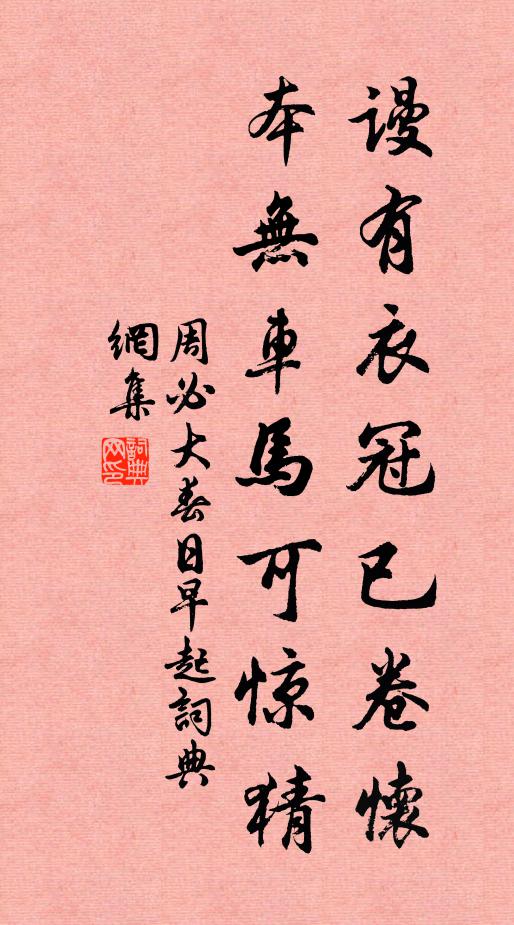 謾有衣冠已卷懷
本無車馬可惊猜
周必大春日早起詞典
網集
詞典網印